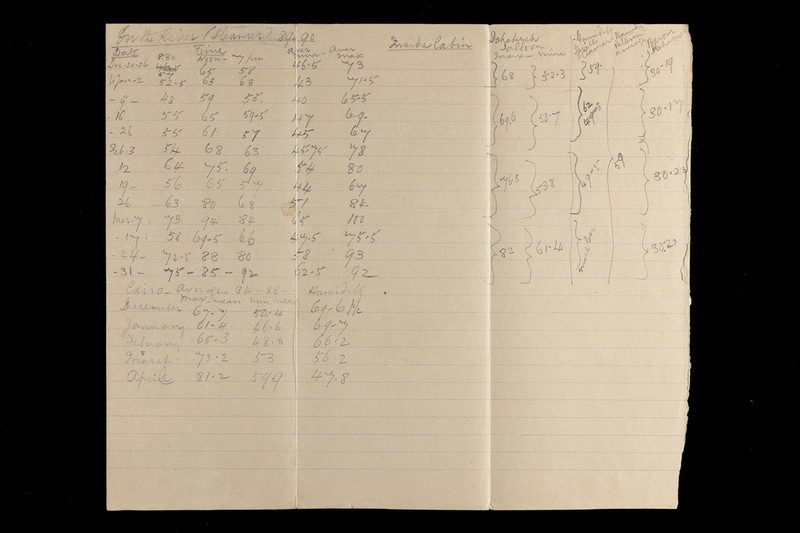 On the River (Steamer) 89-90
Inside Cabin
Date Time Aver min Aver max
Noon
Dec 20-26 65 58 46.5 73
Jan. 2 52.5 63 63 43 71.5
- 9 - 48 59 55. 40 65.5
- 16 55 65 59.5 47 69-
- 26 55 61 57 45 67
Feb. 3 54 68 63 45.75 78
12 64 75. 69 54 80
19 - 56 65 57 44 67
26 - 63 80 68 51 84
Mar. 7. 73 94 84 65 100
- 17. 58 69.5 66 47.5 75.5
- 24 - 72.5 88 80 58 93
- 31 - 75 - 85 - 92 62.5 92
Saloon
max - mine
68 52.3 59. 30-19
69.6 53.7 62 30.17
76.5 53.8 69.5 59 30.23
82 61.4 30.2
Cairo - Averages 84-88 - Humidity
max - mean min mean
December 67.7 50.4 69.6 P/c
January 61-4 46.6 69.7
February 65.3 48.8 66.2
March 73.2 53 56.2
April 81.2 59.9 47.8